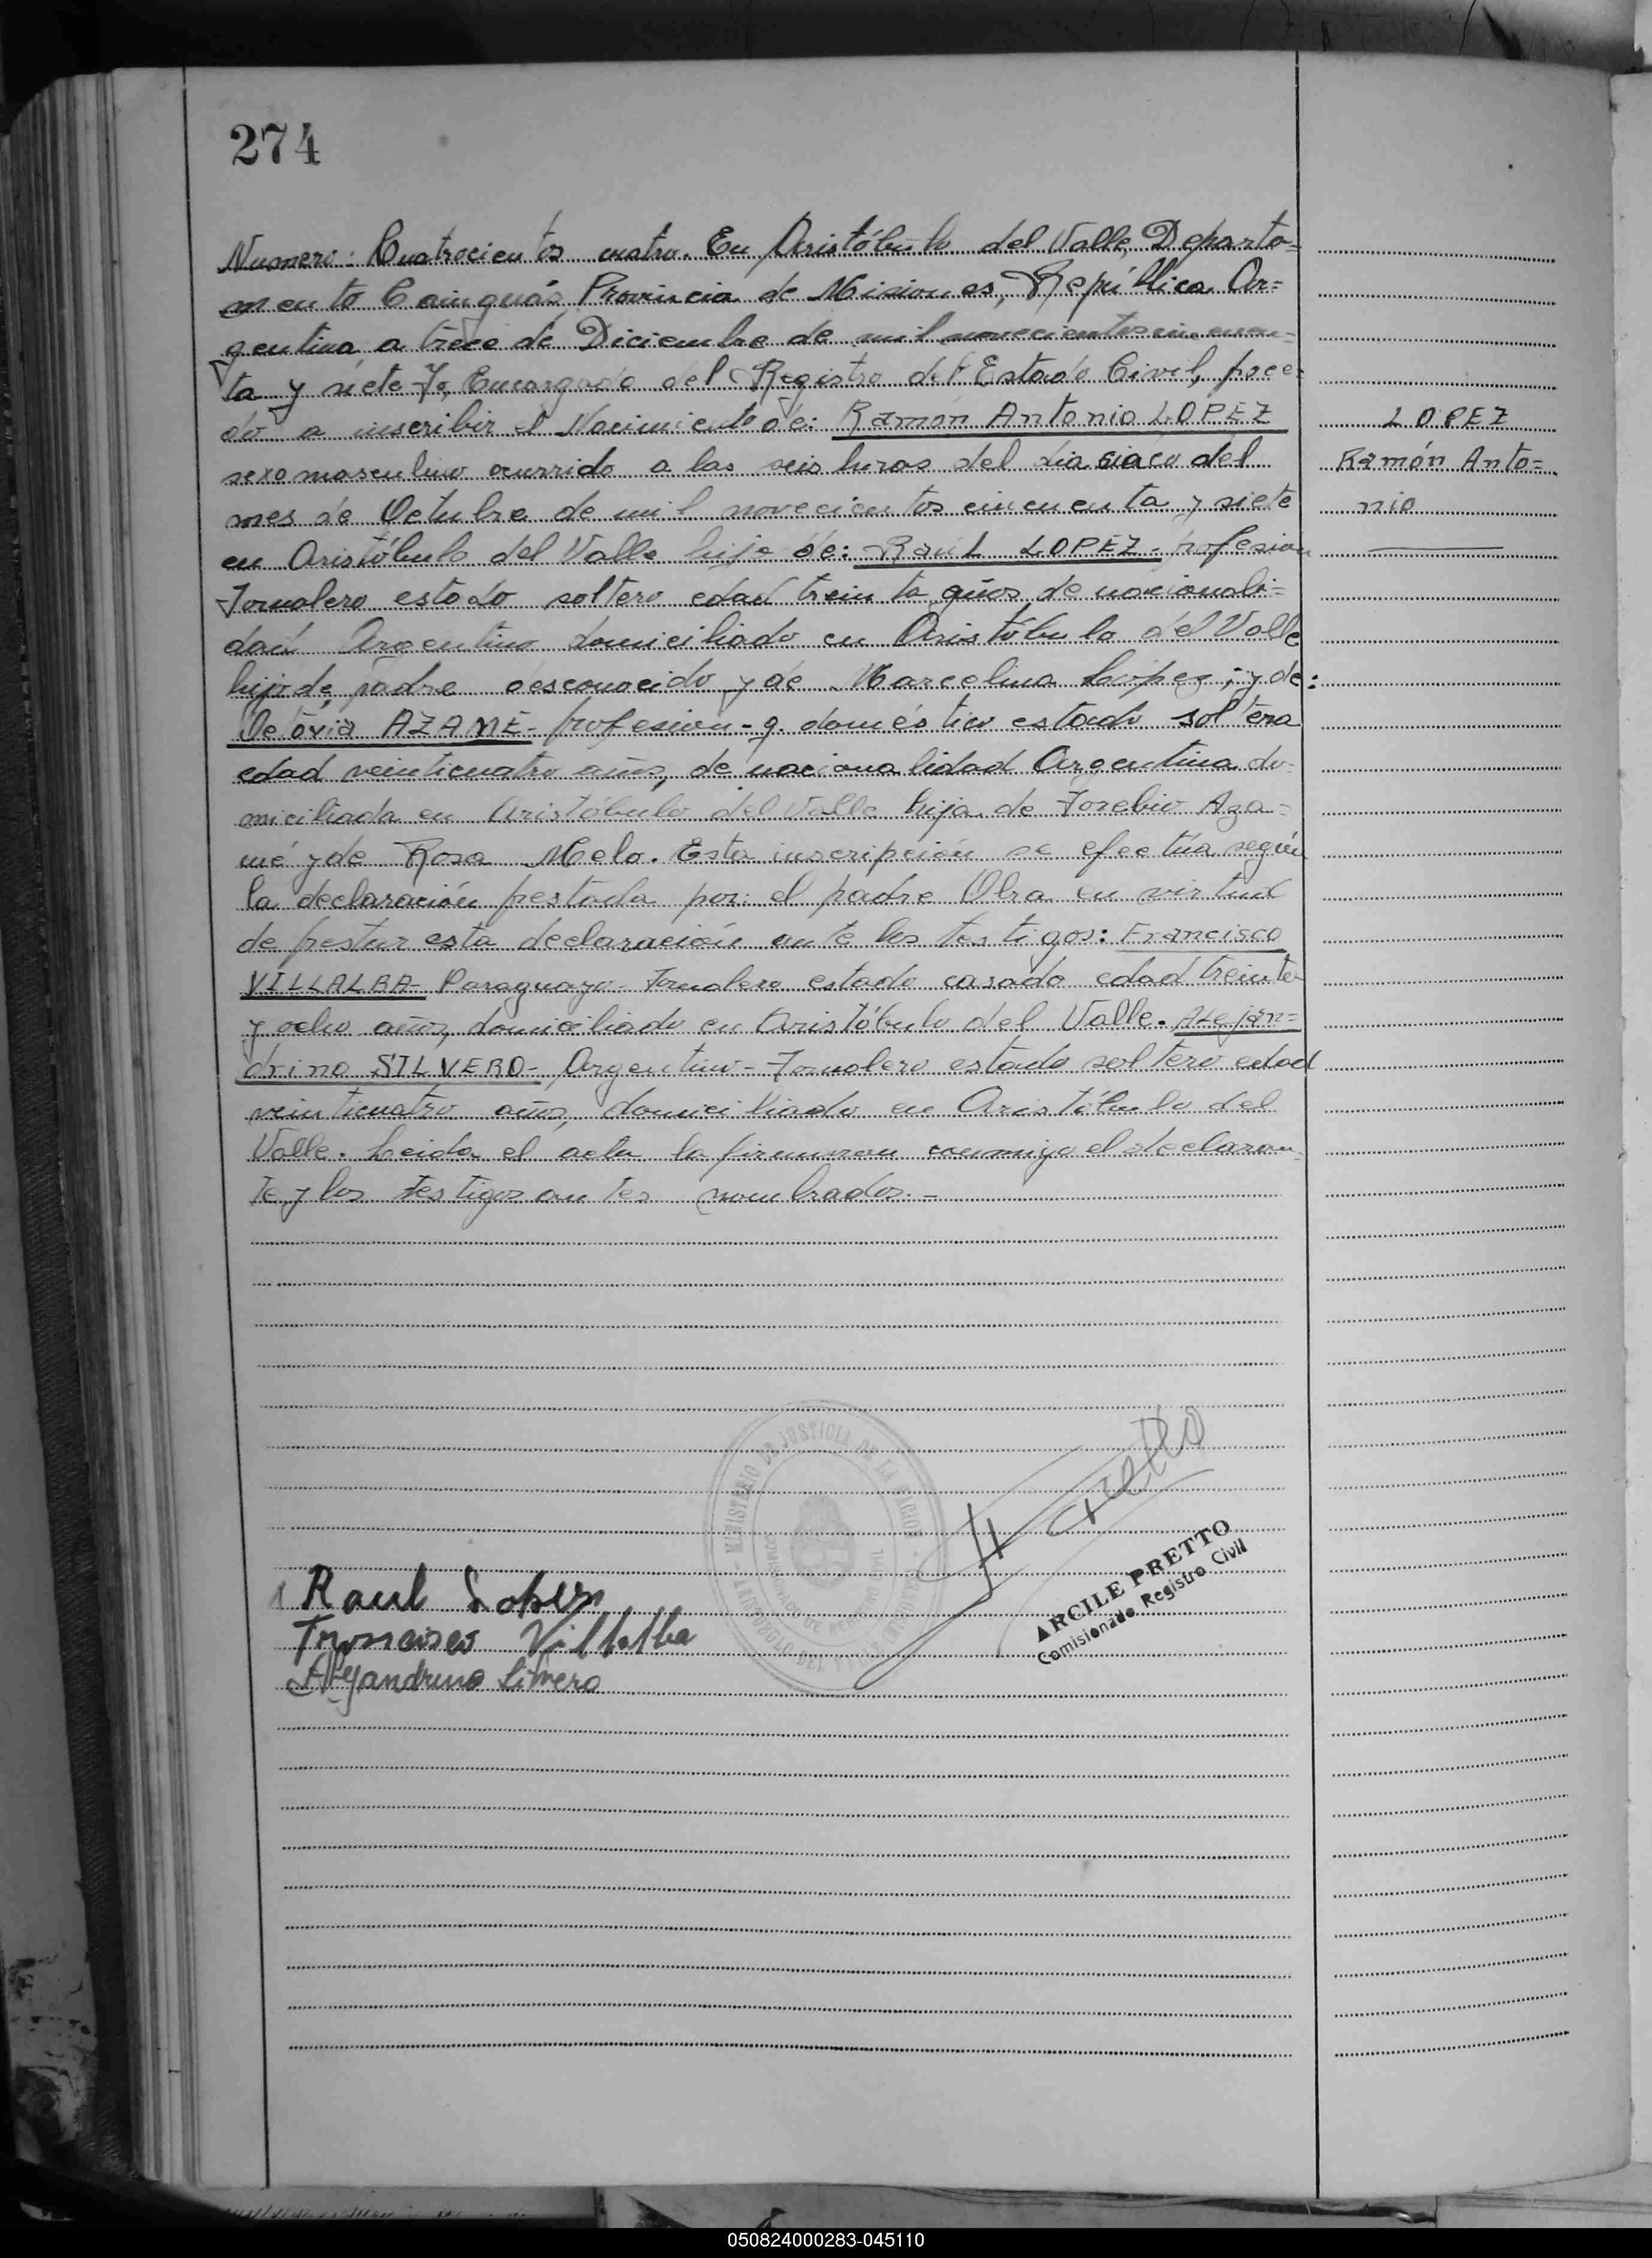 274
Numero: Cuatrocientos cuatro. En Aristóbulo del Valle, Departa=
mento Cainguás, Provincia de Misiones, República Ar=
gentina a trece de Diciembre de mil novecientos cincuen=
ta y siete Yo, Encargado del Registro del Estado Civil, proce=
do a inscribir el Nacimiento de: Ramón Antonio LOPEZ
LOPEZ
sexo masculino ocurrido a las seis horas del dia cinco del
Ramón Anto=
mes de Octubre de mil novecientos cincuenta y siete
nio
en Aristóbulo del Valle hijo de: Raúl LOPEZ- profesion
Jornalero estado soltero edad treinta años, de nacionali=
dad Argentino domiciliado en Aristóbulo del Valle
hijo de padre desconocido y de Marcelina López; y de:
AZAMÉ- profesion- q. doméstico estado soltera
edad veinticuatro años, de nacionalidad Argentina do=
miciliada en Aristóbulo del Valle hija de Torebio Aza=
mé y de Rosa Melo. Esta inscripción se efectúa según
la declaración prestada por: el padre Obra en virtud
de prestar esta declaración ante los testigos: Francisco
VILLALBA- Paraguayo- Jornalero estado casado edad treinta
y ocho años, domiciliado en Aristóbulo del Valle. Alejan=
drino SILVERO- Argentino- Jornalero estado soltero edad
veinticuatro años, domiciliado en Aristóbulo del
Valle. Leida el acta la firmaron conmigo el declaran=
te y los testigos antes nombrados.-
MINISTERIO DE JUSTICIA DE LA NACION
ARISTOBULO DEL VALLE
Pretto
ARCILE PRETTO
Comisionado Registro Civil
Raul Lopes
Francisco Villalba
Alejandrino Silvero
050824000283-045110